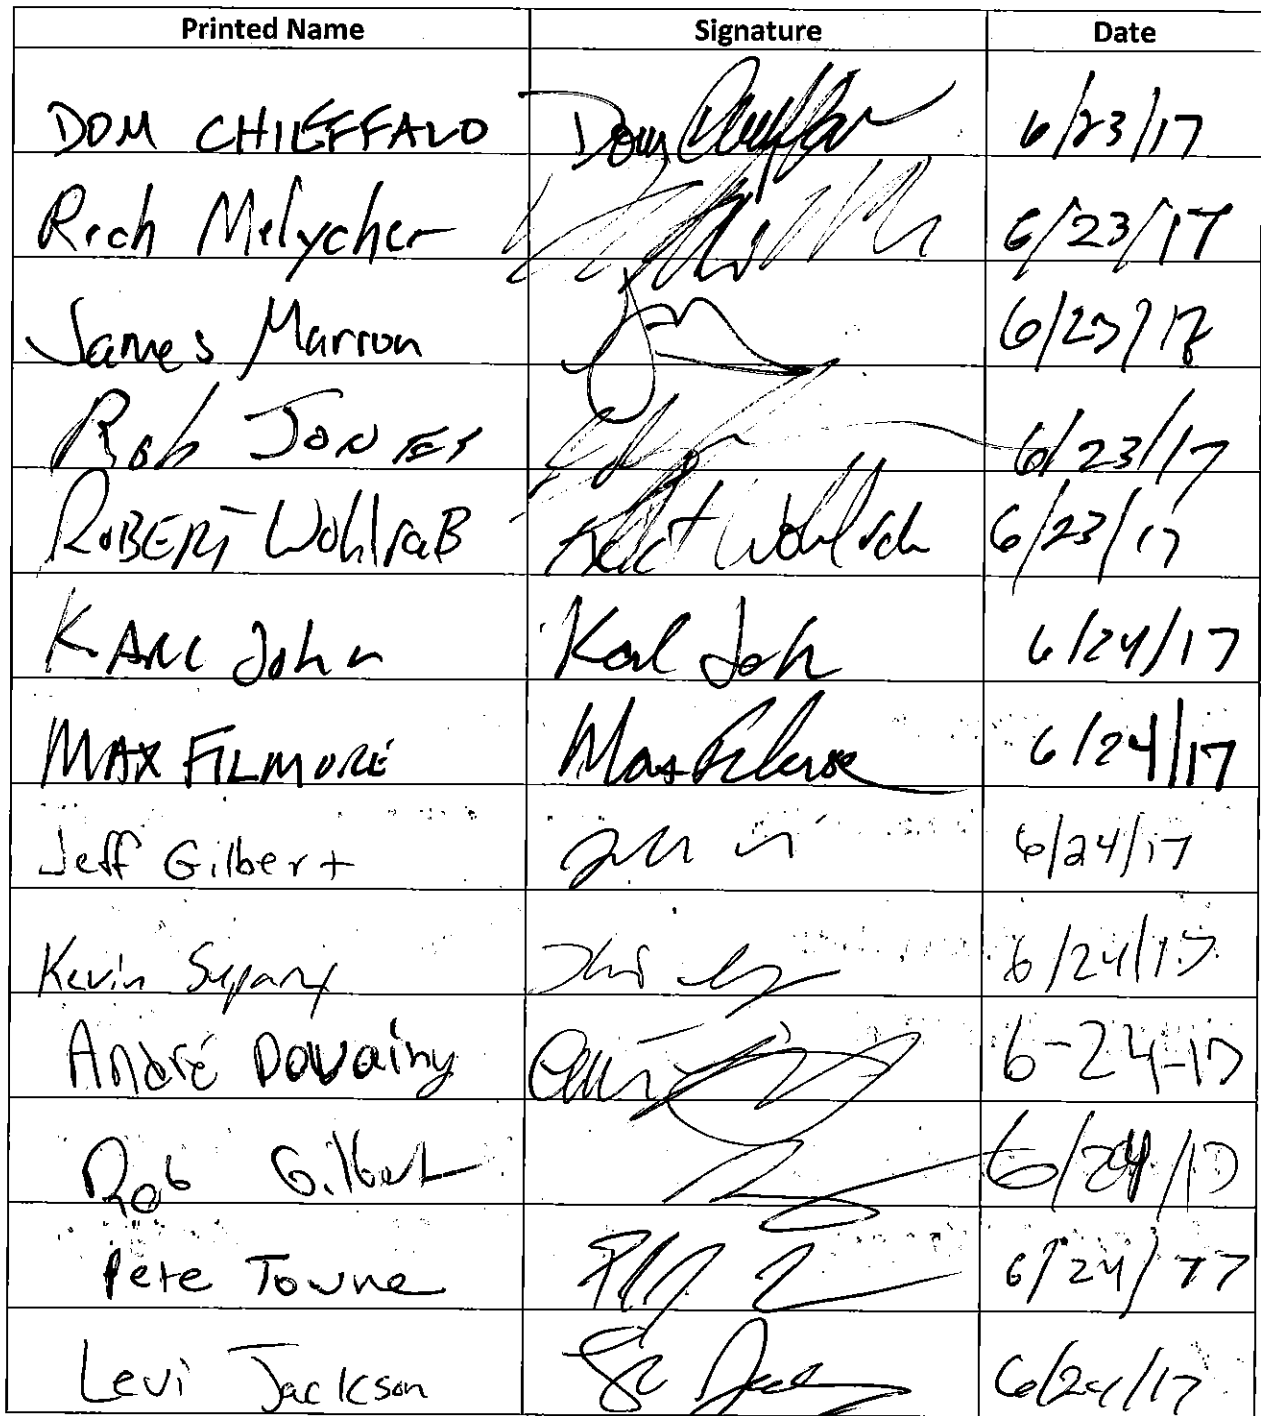 Printed Name Signature Date
DOM CHIEFFALO Dom 6/23/17
Rich Melycher 6/23/17
James Marron 6/23/17
Rob JONES 6/23/17
ROBERT WohlraB Robert Wohlrab 6/23/17
KARL John Karl John 6/24/17
MAX FILMORE Max Filmore 6/24/17
Jeff Gilbert 6/24/17
Kevin 6/24/17
André Douainy 6-24-17
Rob Gilbert 6/24/17
Pete Towne 6/24/17
Levi Jackson 6/24/17